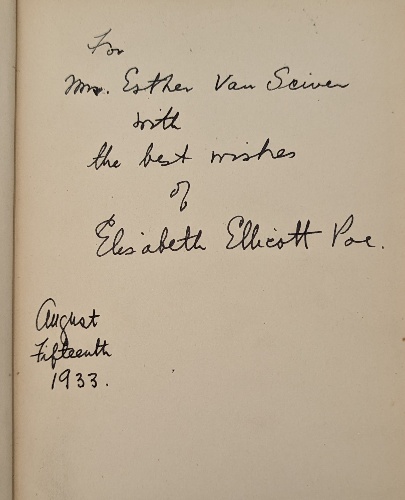 For
Mrs. Esther Van Sciver
with
the best wishes
of
Elisabeth Ellicott Poe.
August
Fifteenth
1933.